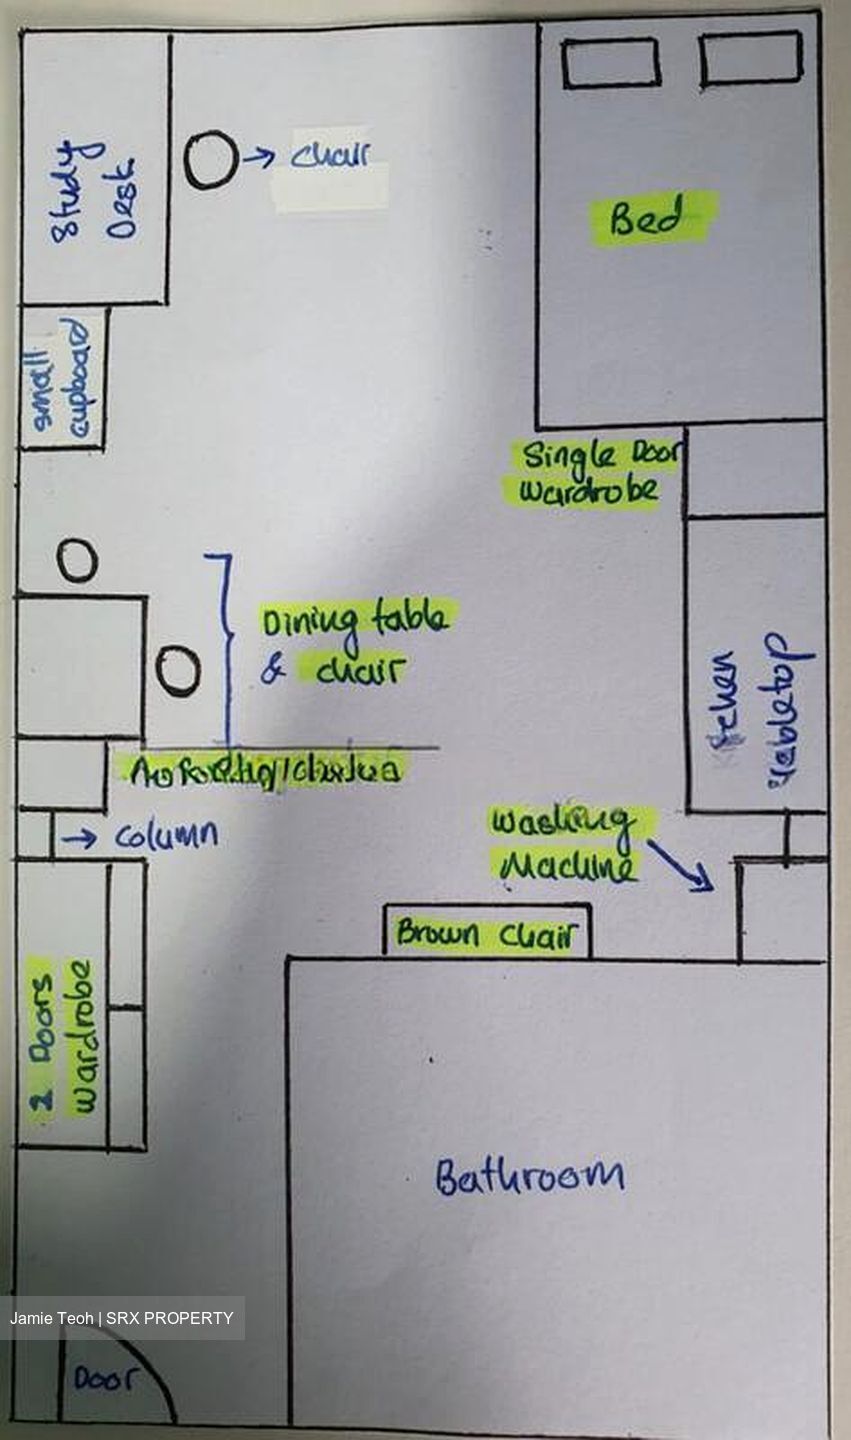 Study
Desk
→ chair
Bed
small
cupboard
Single Door
Wardrobe
Dining table
& chair
→ column
Kitchen
Tabletop
Washing
Machine
Brown Chair
2 Doors
Wardrobe
Bathroom
Jamie Teoh | SRX PROPERTY
Door